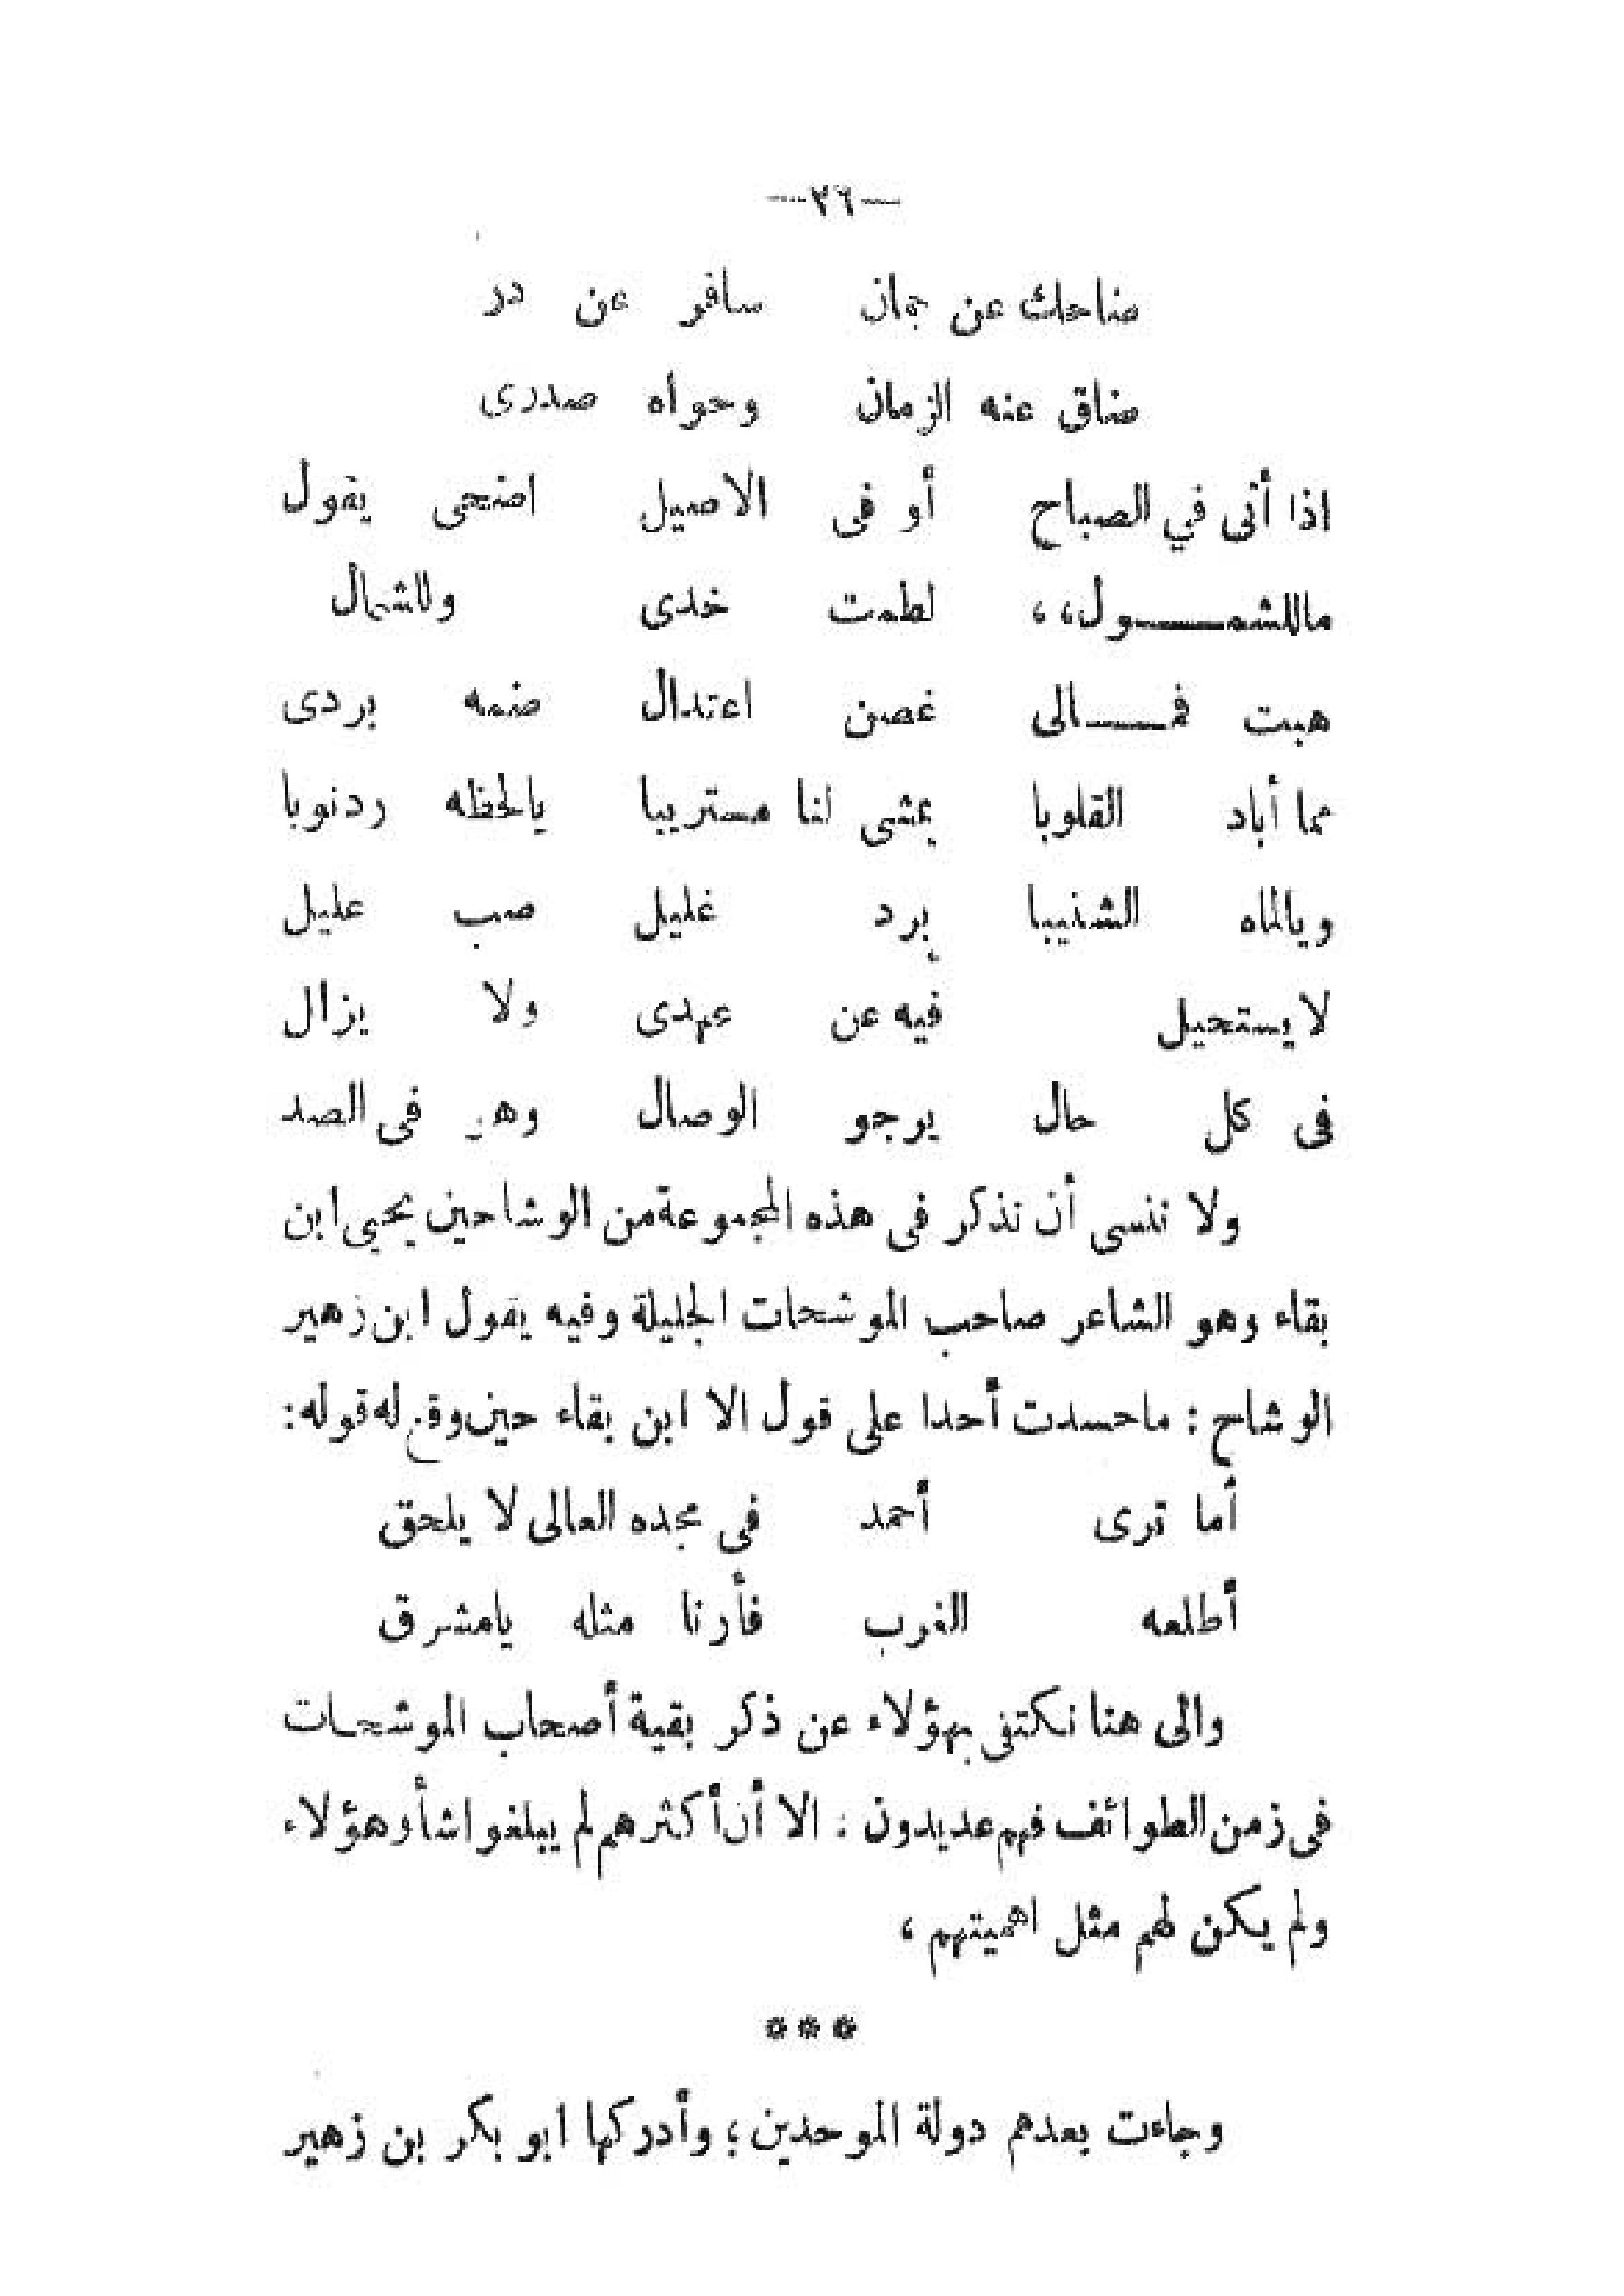 —٣٦—
ضاحك عن جمان سافر عن در
ضاق عنه الزمان وحواه صدرى
اذا أتى في الصباح أو فى الاصيل اضحى يقول
ماللشمـــول،، لطمت خدى وللشمأل
هبت فمـــالى غصن اعتدال ضمه بردى
مما أباد القلوبا يمشى لنا مستريبا يالحظه ردنوبا
ويالماه الشنيبا برد غليل صب عليل
لا يستحيل فيه عن عهدى ولا يزال
فى كل حال يرجو الوصال وهو فى الصد
ولا ننسى أن نذكر فى هذه المجموعة من الوشاحين يحيى ابن
بقاء وهو الشاعر صاحب الموشحات الجليلة وفيه يقول ابن زهير
الوشاح : ماحسدت أحدا على قول الا ابن بقاء حين وقع له قوله:
أما ترى أحمد فى مجده العالى لا يلحق
أطلعه الغرب فأرنا مثله يامشرق
والى هنا نكتفى بهؤلاء عن ذكر بقية أصحاب الموشحات
فى زمن الطوائف فهم عديدون : الا أن أكثرهم لم يبلغوا شأو هؤلاء
ولم يكن لهم مثل اهميتهم ،
***
وجاءت بعدهم دولة الموحدين ؛ وأدركها ابو بكر بن زهير